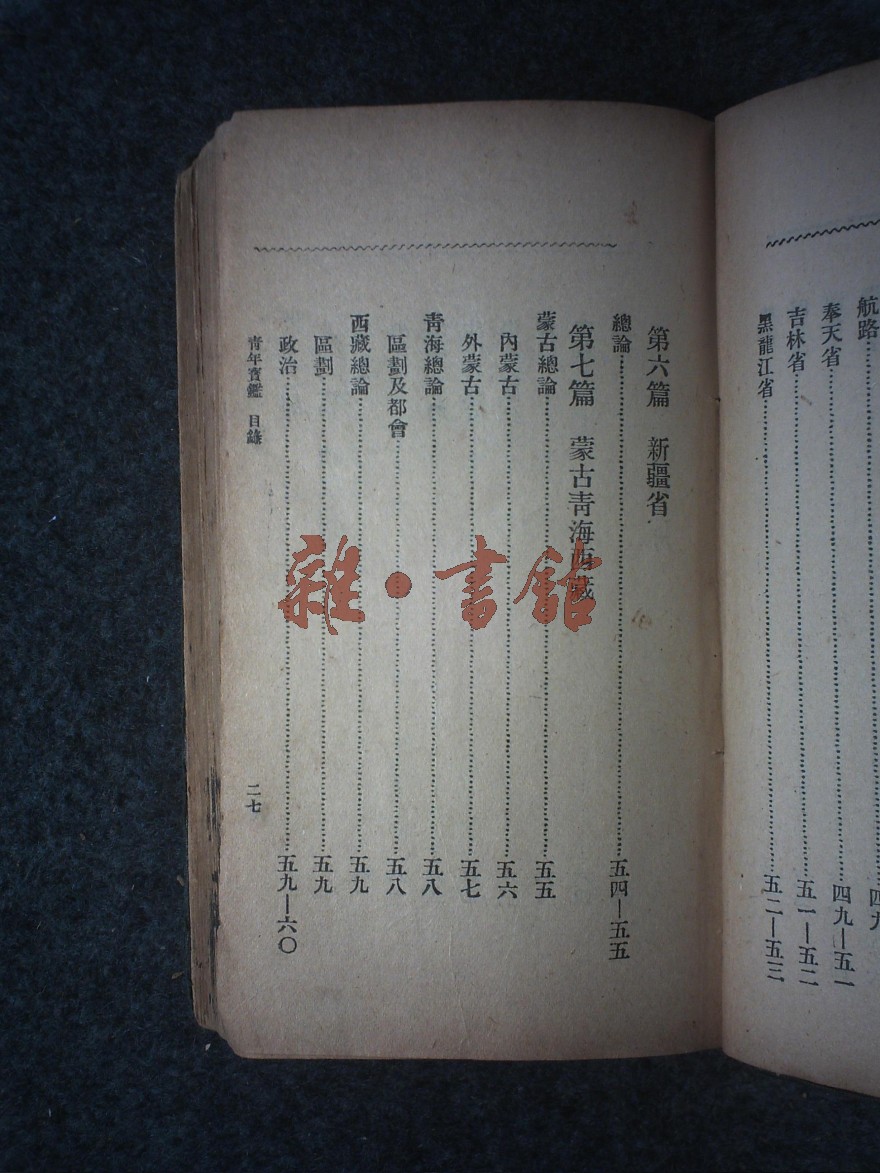 航路……四九
奉天省……四九—五一
吉林省……五一—五二
黑龍江省……五二—五三
第六篇　新疆省
總論……五四—五五
第七篇　蒙古青海西藏
蒙古總論……五五
內蒙古……五六
外蒙古……五七
青海總論……五八
區劃及都會……五八
西藏總論……五九
區劃……五九
政治……五九—六〇
青年寶鑑　目錄
二七
雜·書館